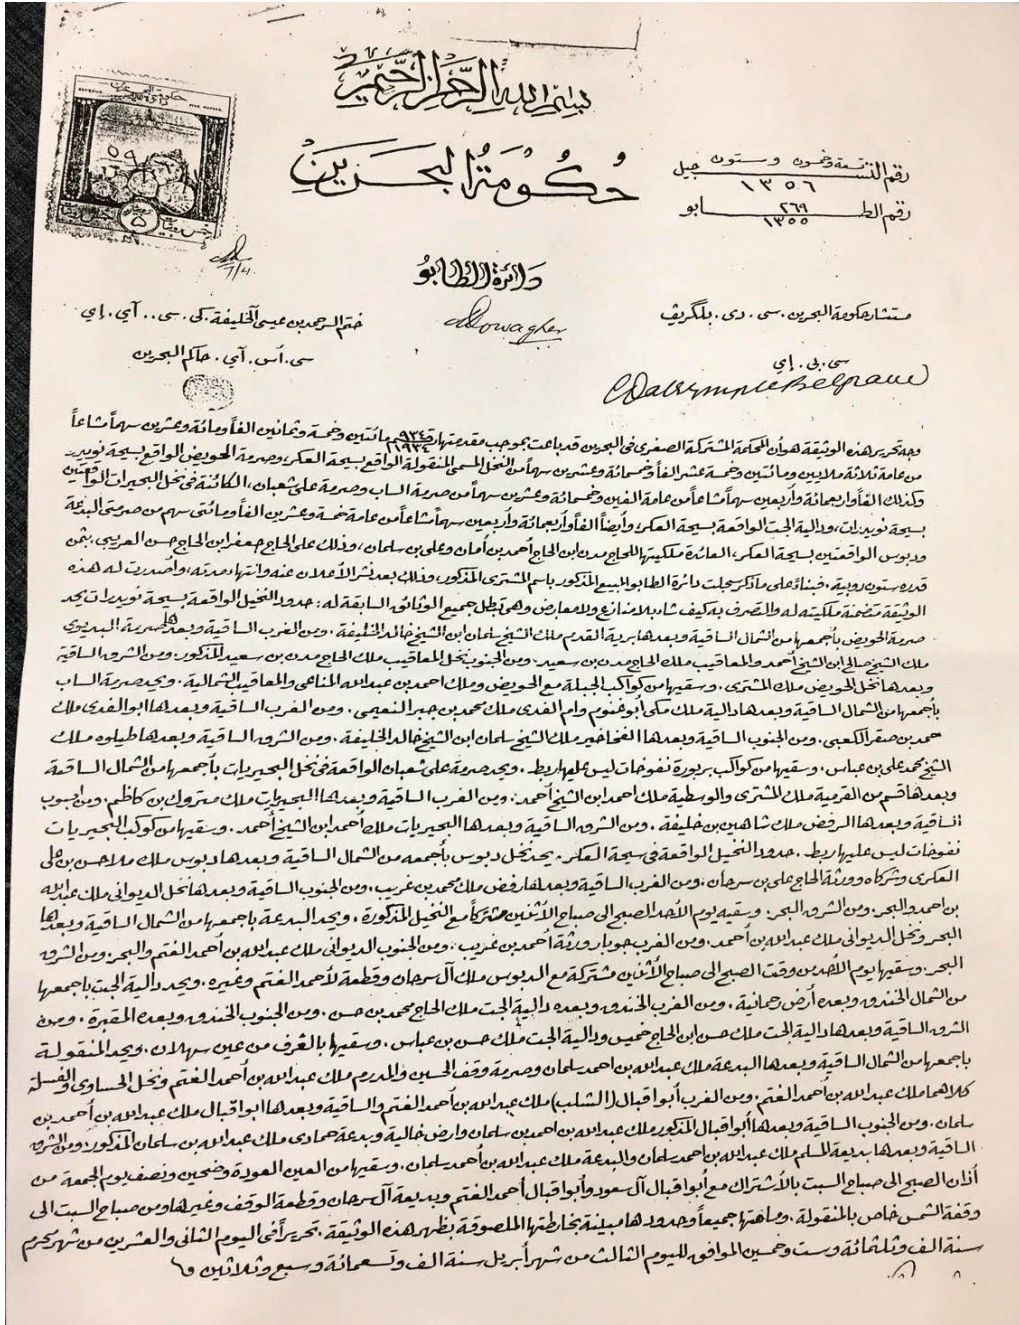 بسم الله الرحمن الرحيم
حكومة البحرين
رقم التسجيل تسعة وخمسون وستون
١٣٥٦
رقم الطابو ٢٦٩
١٣٥٥
٥
دائرة الطابو
مستشار حكومة البحرين . سی . دی . بلگریف
سی . بی . إي
CDalrymple Belgrave
ختم السر حمد بن عيسى الخليفة . کی . سی . . آي . إي
سی . أس . آي . حاكم البحرين
وجه تحرير هذه الوثيقة هو أن المحكمة المشتركة الصغرى في البحرين قد باعت بموجب مقدمتها رقم مائتين وخمسة وثمانين الفاً ومائة وعشرين سهماً مشاعاً
من عامة ثلاثة ملايين ومائتين وخمسة عشر الفاً وخمسمائة وعشرين سهماً من النخل المسمى المنقولة الواقع بسيحة العكر، وصرمة الحويض الواقع بسيحة نويدرر
وكذلك الفاً وأربعمائة وأربعين سهماً مشاعاً من عامة الفين وخمسمائة وعشرين سهماً من صرمة الساب وصرمة على شعبان، الكائنة في نخل البحيرات الواقعتين
بسيحة نويدرات، ودالية الجت الواقعة بسيحة العكر، وأيضاً الفاً وأربعمائة وأربعين سهماً مشاعاً من عامة خمسة وعشرين الفاً ومائتى سهم من صرمتى البدعة
ودبوس الواقعتين بسيحة العكر، العائدة ملكيتها للحاج مدن ابن الحاج أحمد بن أمان وعلى بن سلمان، وذلك على الحاج جعفر ابن الحاج حسن العريبى، بثمن
قدره ستون روبية . فبناءً على ما ذكر سجلت دائرة الطابو المبيع المذكور باسم المشترى المذكور، وذلك بعد نشر الأعلان عنه وانتهاء مدته، وأصدرت له هذه
الوثيقة متضمنة ملكيته له والتصرف به كيف شاء بلا منازع ولا معارض وهى تبطل جميع الوثائق السابقة له : حدود النخيل الواقعة بسيحة نويدرات يحد
صرمة الحويض بأجمعها من الشمال الساقية وبعدها برية القدم ملك الشيخ سلمان ابن الشيخ خالد الخليفة . ومن الغرب الساقية وبعدها صرمة البديوي
ملك الشيخ صالح ابن الشيخ أحمد والمعاقيب ملك الحاج مدن بن سعيد . ومن الجنوب نخل المعاقيب ملك الحاج مدن بن سعيد المذكور. ومن الشرق الساقية
وبعدها نخل الحويض ملك المشترى . وسقيها من كواكب الجبلة مع الحويض وملك احمد بن عبد الله المناعى والمعاقيب الشمالية . ويحد صرمة الساب
بأجمعها من الشمال الساقية وبعدها دالية ملك مكى أبو غنوم وام الفدى ملك محمد بن جبر النعيمى . ومن الغرب الساقية وبعدها ابو الفدى ملك
حمد بن صقر الكعبى . ومن الجنوب الساقية وبعدها الفخاخير ملك الشيخ سلمان ابن الشيخ خالد الخليفة . ومن الشرق الساقية وبعدها طيلوه ملك
الشيخ محمد على بن عباس . وسقيها من كواكب بربورة نفوخات ليس عليها ربط . ويحد صرمة على شعبان الواقعة فى نخل البحيريات بأجمعها من الشمال الساقية
وبعدها قسم من القرمية ملك المشترى والوسطية ملك احمد ابن الشيخ أحمد . ومن الغرب الساقية وبعدها البحيريات ملك متروك بن كاظم . ومن الجنوب
الساقية وبعدها المرفض ملك شاهين بن خليفة . ومن الشرق الساقية وبعدها البحيريات ملك احمد ابن الشيخ أحمد . وسقيها من كوكب البحيريات
نفوخات ليس عليها ربط . حدود النخيل الواقعة فى سيحة العكر . يحد نخل دبوس بأجمعه من الشمال الساقية وبعدها دبوس ملك ملا حسن بن على
العكرى وشركاه وورثة الحاج على بن سرحان . ومن الغرب الساقية وبعدها رفض ملك محمد بن غريب . ومن الجنوب الساقية وبعدها نخل الديوانى ملك عبد الله
بن احمد والبحر . ومن الشرق البحر . وسقيه يوم الأحد الصبح الى صباح الأثنين مشتركاً مع النخيل المذكورة . ويحد البدعة بأجمعها من الشمال الساقية وبعدها
البحر ونخل الديوانى ملك عبد الله بن أحمد . ومن الغرب جوبار ورثة أحمد بن غريب . ومن الجنوب الديوانى ملك عبد الله بن أحمد الغتم والبحر. ومن الشرق
البحر. وسقيها يوم الأحد من وقت الصبح الى صباح الأثنين مشتركة مع الدبوس ملك آل سرحان وقطعة لأحمد الغتم وغيره . ويحد دالية الجت بأجمعها
من الشمال الخندق وبعده أرض رحمانية . ومن الغرب الخندق وبعده دالية الجت ملك الحاج محمد بن حسن . ومن الجنوب الخندق وبعده المقبرة . ومن
الشرق الساقية وبعدها دالية الجت ملك حسن ابن الحاج خميس ودالية الجت ملك حسن بن عباس . وسقيها بالغرف من عين سهلان . ويحد المنقولة
بأجمعها من الشمال الساقية وبعدها البدعة ملك عبد الله بن احمد سلمان وصرمة وقف الحسين والمدرم ملك عبد الله بن أحمد الغتم ونخل الحساوى والفسلة
كلاهما ملك عبد الله بن أحمد الغتم . ومن الغرب أبو اقبال (الشلب) ملك عبد الله بن أحمد الغتم والساقية وبعدها ابو اقبال ملك عبد الله بن أحمد بن
سلمان . ومن الجنوب الساقية وبعدها أبو اقبال المذكور ملك عبد الله بن احمد بن سلمان وارض خالية وبدعة حمادى ملك عبد الله بن سلمان المذكور. ومن الشرق
الساقية وبعدها بديعة المسلم ملك عبد الله بن احمد سلمان والبدعة ملك عبد الله بن أحمد سلمان . وسقيها من العين العودة وضحين ونصف يوم الجمعة من
أذان الصبح الى صباح السبت بالأشتراك مع أبو اقبال آل سعود وأبو اقبال أحمد الغتم وبديعة آل سرحان وقطعة الوقف وغيرها ومن صباح السبت الى
وقفة الشمس خاص بالمنقولة . ومساحتها جميعاً وحدودها مبينة بخارطتها الملصوقة بظهر هذه الوثيقة . تحريراً فى اليوم الثانى والعشرين من شهر محرم
سنة الف وثلثمائة وست وخمسين الموافق لليوم الثالث من شهر أبريل سنة الف وتسعمائة وسبع وثلاثين م